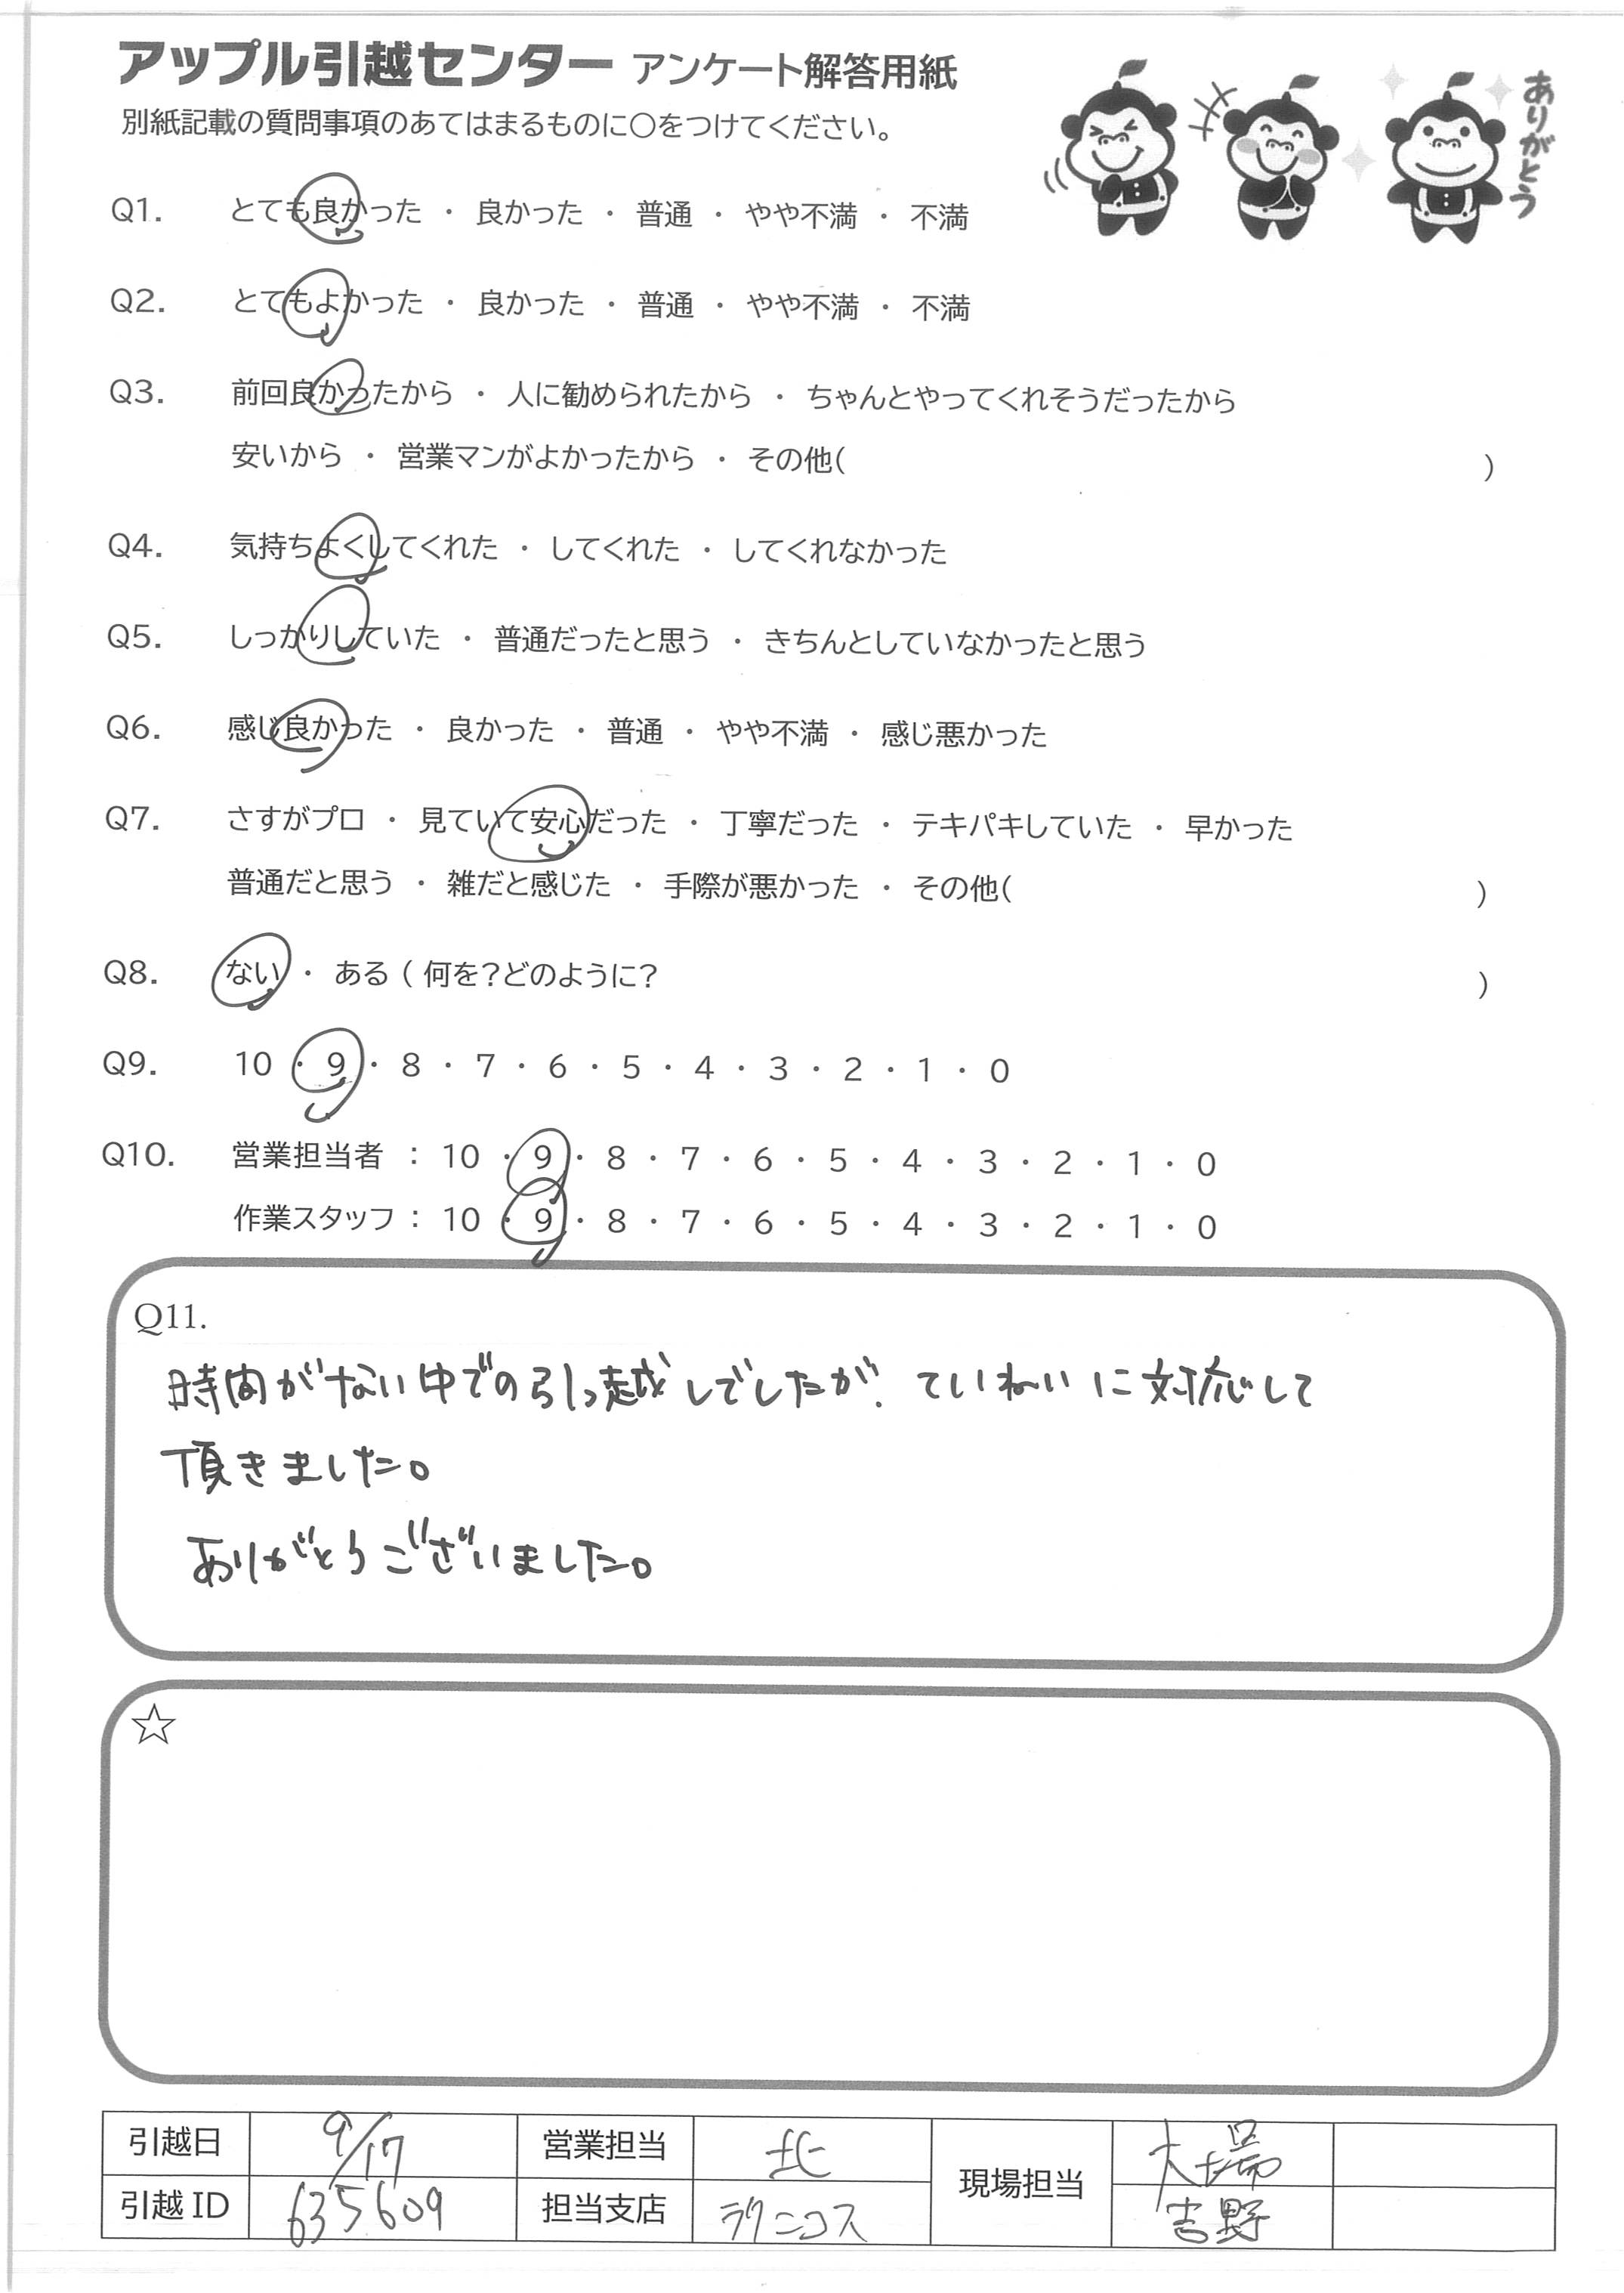 アップル引越センター アンケート解答用紙
ありがとう
別紙記載の質問事項のあてはまるものに○をつけてください。
Q1. とても良かった ・ 良かった ・ 普通 ・ やや不満 ・ 不満
Q2. とてもよかった ・ 良かった ・ 普通 ・ やや不満 ・ 不満
Q3. 前回良かったから ・ 人に勧められたから ・ ちゃんとやってくれそうだったから
安いから ・ 営業マンがよかったから ・ その他( )
Q4. 気持ちよくしてくれた ・ してくれた ・ してくれなかった
Q5. しっかりしていた ・ 普通だったと思う ・ きちんとしていなかったと思う
Q6. 感じ良かった ・ 良かった ・ 普通 ・ やや不満 ・ 感じ悪かった
Q7. さすがプロ ・ 見ていて安心だった ・ 丁寧だった ・ テキパキしていた ・ 早かった
普通だと思う ・ 雑だと感じた ・ 手際が悪かった ・ その他( )
Q8. ない ・ ある ( 何を?どのように? )
Q9. 10 ・ 9 ・ 8 ・ 7 ・ 6 ・ 5 ・ 4 ・ 3 ・ 2 ・ 1 ・ 0
Q10. 営業担当者 : 10 ・ 9 ・ 8 ・ 7 ・ 6 ・ 5 ・ 4 ・ 3 ・ 2 ・ 1 ・ 0
作業スタッフ : 10 ・ 9 ・ 8 ・ 7 ・ 6 ・ 5 ・ 4 ・ 3 ・ 2 ・ 1 ・ 0
Q11.
時間がない中での引っ越しでしたが、ていねいに対応して
頂きました。
ありがとうございました。
☆
引越日 9/17 営業担当 北 現場担当 大場
引越 ID 635609 担当支店 ラクニコス 吉野